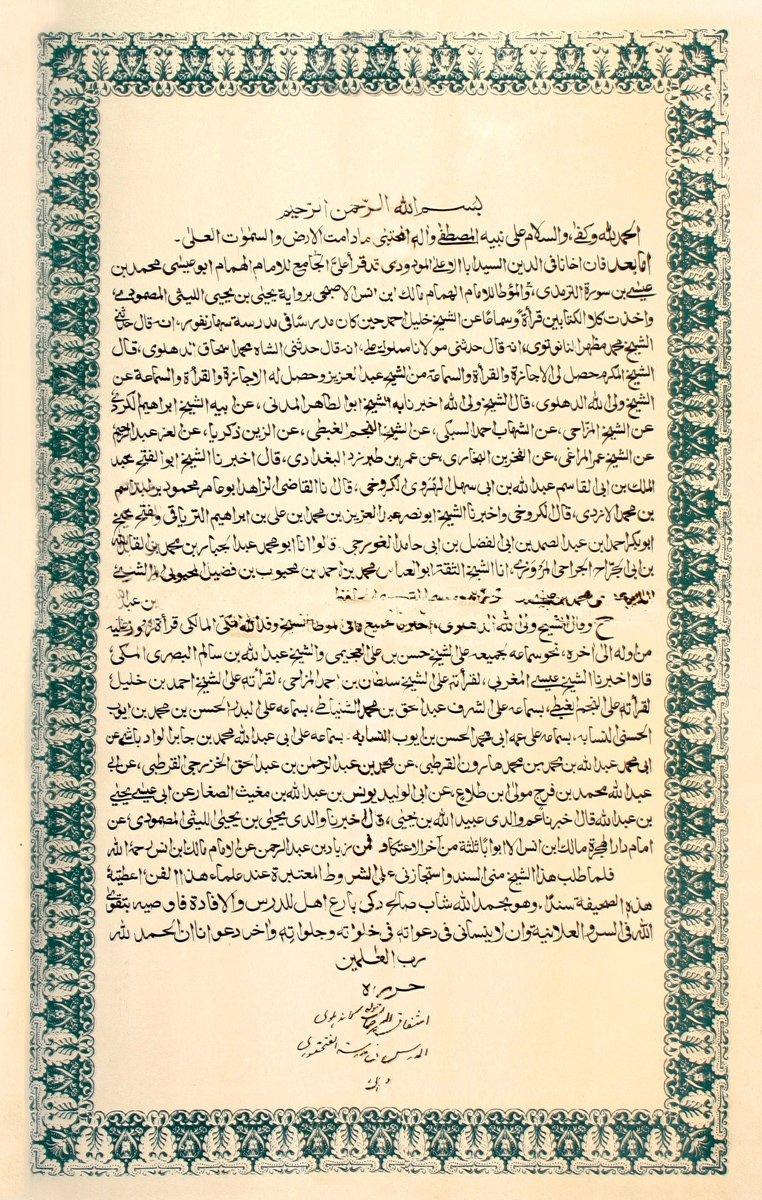 بسم الله الرحمن الرحيم
الحمد لله وكفى، والسلام على نبيه المصطفى وآله المجتبى مادامت الارض والسموات العلى۔
امابعد فان اخانا فى الدين السيد ابا الاعلى المودودى قد قرأ علىّ الجامع للامام الهمام ابو عيسى محمد بن
عيسى بن سورة الترمذى، والمؤطا للامام الهمام مالك ابن انس الاصبحى برواية يحيى بن يحيى الليثى المصمودى،
واخذت كلا الكتابين قرأة وسماعا عن الشيخ خليل احمد حين كان مدرسا فى مدرسة سهارنفور، انه قال
الشيخ محمد مظهر النانوتوى، انه قال حدثنى مولانا مملوك على، انه قال حدثنى الشاه محمد اسحاق الدهلوى، قال
الشيخ المكرم حصل لى الاجازة والقرأة والسماعة من الشيخ عبد العزيز وحصل له الاجازة والقرأة والسماعة عن
الشيخ ولى الله الدهلوى، قال الشيخ ولى الله اخبرنا به الشيخ ابوالطاهر المدنى، عن ابيه الشيخ ابراهيم الكردى
عن الشيخ المزاحى، عن الشهاب احمد السبكى، عن الشيخ النجم الغيطى، عن الزين زكريا، عن العز عبد الرحيم
عن الشيخ عمر المراغى، عن الفخر بن البخارى، عن عمر بن طبرزد البغدادى، قال اخبرنا الشيخ ابو الفتح عبد
الملك بن ابى القاسم عبد الله بن ابى سهل الهروى الكروخى، قال نا القاضى الزاهد ابو عامر محمود بن القاسم
بن محمد الازدى، قال الكروخى واخبرنا الشيخ ابو نصر عبد العزيز بن محمد ابن على بن ابراهيم الترياقى والشيخ
ابو بكر احمد بن عبد الصمد بن ابى الفضل بن ابى حامد الغورجى۔ قالوا انا ابو محمد عبد الجبار بن محمد بن
بن ابى الجراح الجراحى المروزى، انا الشيخ الثقة ابو العباس محمد بن احمد بن محبوب بن فضيل المحبوبى
ح وقال الشيخ ولى الله الدهلوى، اخبرنا بجميع مافى المؤطا الشيخ وفد الله المكى المالكى قرأة
من اوله الى آخره، نحو سماعه لجميعه على الشيخ حسن بن على العجيمى والشيخ عبد الله بن سالم البصرى المكى،
قالا اخبرنا الشيخ عيسى المغربى، لقرأته على الشيخ سلطان بن احمد المزاحى، لقرأته على الشيخ احمد بن خليل
لقرأته على النجم الغيطى، بسماعه على الشرف عبد الحق بن محمد السنباطى، بسماعه على البدر الحسن بن محمد بن ايوب
الحسنى النسابه، بسماعه على عمه ابى محمد الحسن بن ايوب النسابه، بسماعه على ابى عبد الله محمد بن جابر الوادياشى عن
ابى محمد عبد الله بن محمد بن محمد هارون القرطبى، عن محمد بن عبد الرحمن بن عبد الحق الخزرجى القرطبى، عن ابى
عبد الله محمد بن فرج مولى ابن طلاع، عن ابى الوليد يونس بن عبد الله بن مغيث الصفار عن ابى عيسى يحيى
بن عبد الله قال اخبرنا عم والدى عبيد الله بن يحيى، قال اخبرنا والدى يحيى بن يحيى الليثى المصمودى عن
امام دار الهجرة مالك ابن انس الا ابوابا ثلثة من آخر الاعتكاف فمن زياد بن عبد الرحمن عن الامام مالك ابن انس رحمة الله
فلما طلب هذا الشيخ منى السند واستجازنى على الشروط المعتبرة عند علماء هذا الفن اعطيته
هذه الصحيفة سندا، وهو بحمد الله شاب صالح ذكى بارع اهل للدرس والافادة فاوصيه بتقوى
الله فى السر والعلانية وان لا ينسانى فى دعواته فى خلواته وجلواته وآخر دعوانا ان الحمد لله
رب العلمين
حرره
اشفاق الرحمن كاندهلوى
المدرس فى مدرسة الفتحفورى